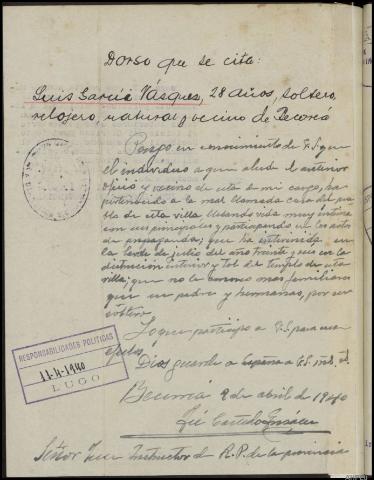 Dorso que se cita:
Luis García Vásquez, 28 años, soltero,
relojero, natural y vecino de Becerreá
Pongo en conocimiento de V.S. que
el individuo a que alude el anterior
oficio y vecino de esta de mi cargo, ha
pertenecido a la mal llamada casa del pue
blo de esta villa llevando vida muy íntima
con sus principales y participando en los actos
de propaganda; que ha intervenido en
la tarde de julio del año treinta y seis en la
destrucción interior y tol del templo de esta
villa; que no le conoce mas familiares
que un padre y hermanas, por ser
soltero.
Lo que participo a V.S. para sus
efectos.
Dios guarde a España a V.S. m.
Becerreá 9 de abril de 1940
José Castelo
RESPONSABILIDADES POLITICAS
11-4-1940
LUGO
Señor Juez Instructor de R.P. de la provincia